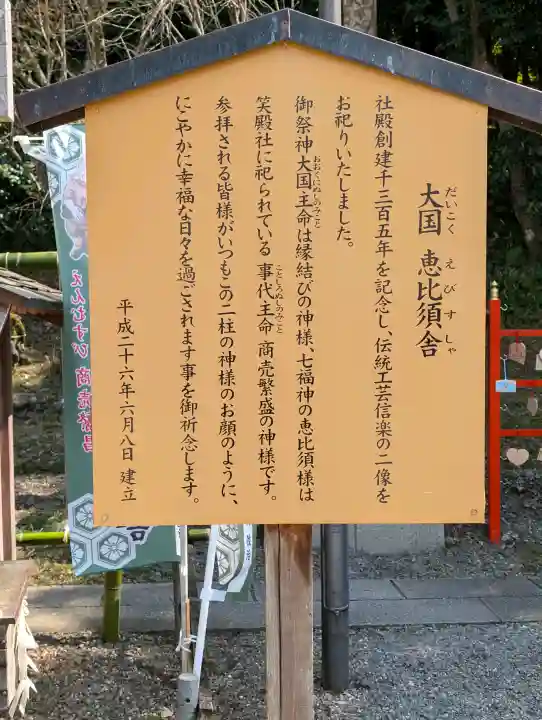 大国 恵比須舎
だいこく えびすしゃ
社殿創建千三百五年を記念し、伝統工芸信楽の二像を
お祀りいたしました。
御祭神大国主命は縁結びの神様、七福神の恵比須様は
おおくにぬしのみこと
笑殿社に祀られている 事代主命 商売繁盛の神様です。
ことしろぬしのみこと
参拝される皆様がいつもこの二柱の神様のお顔のように、
にこやかに幸福な日々を過ごされます事を御祈念します。
平成二十六年六月八日 建立
えんむすび 商売繁昌